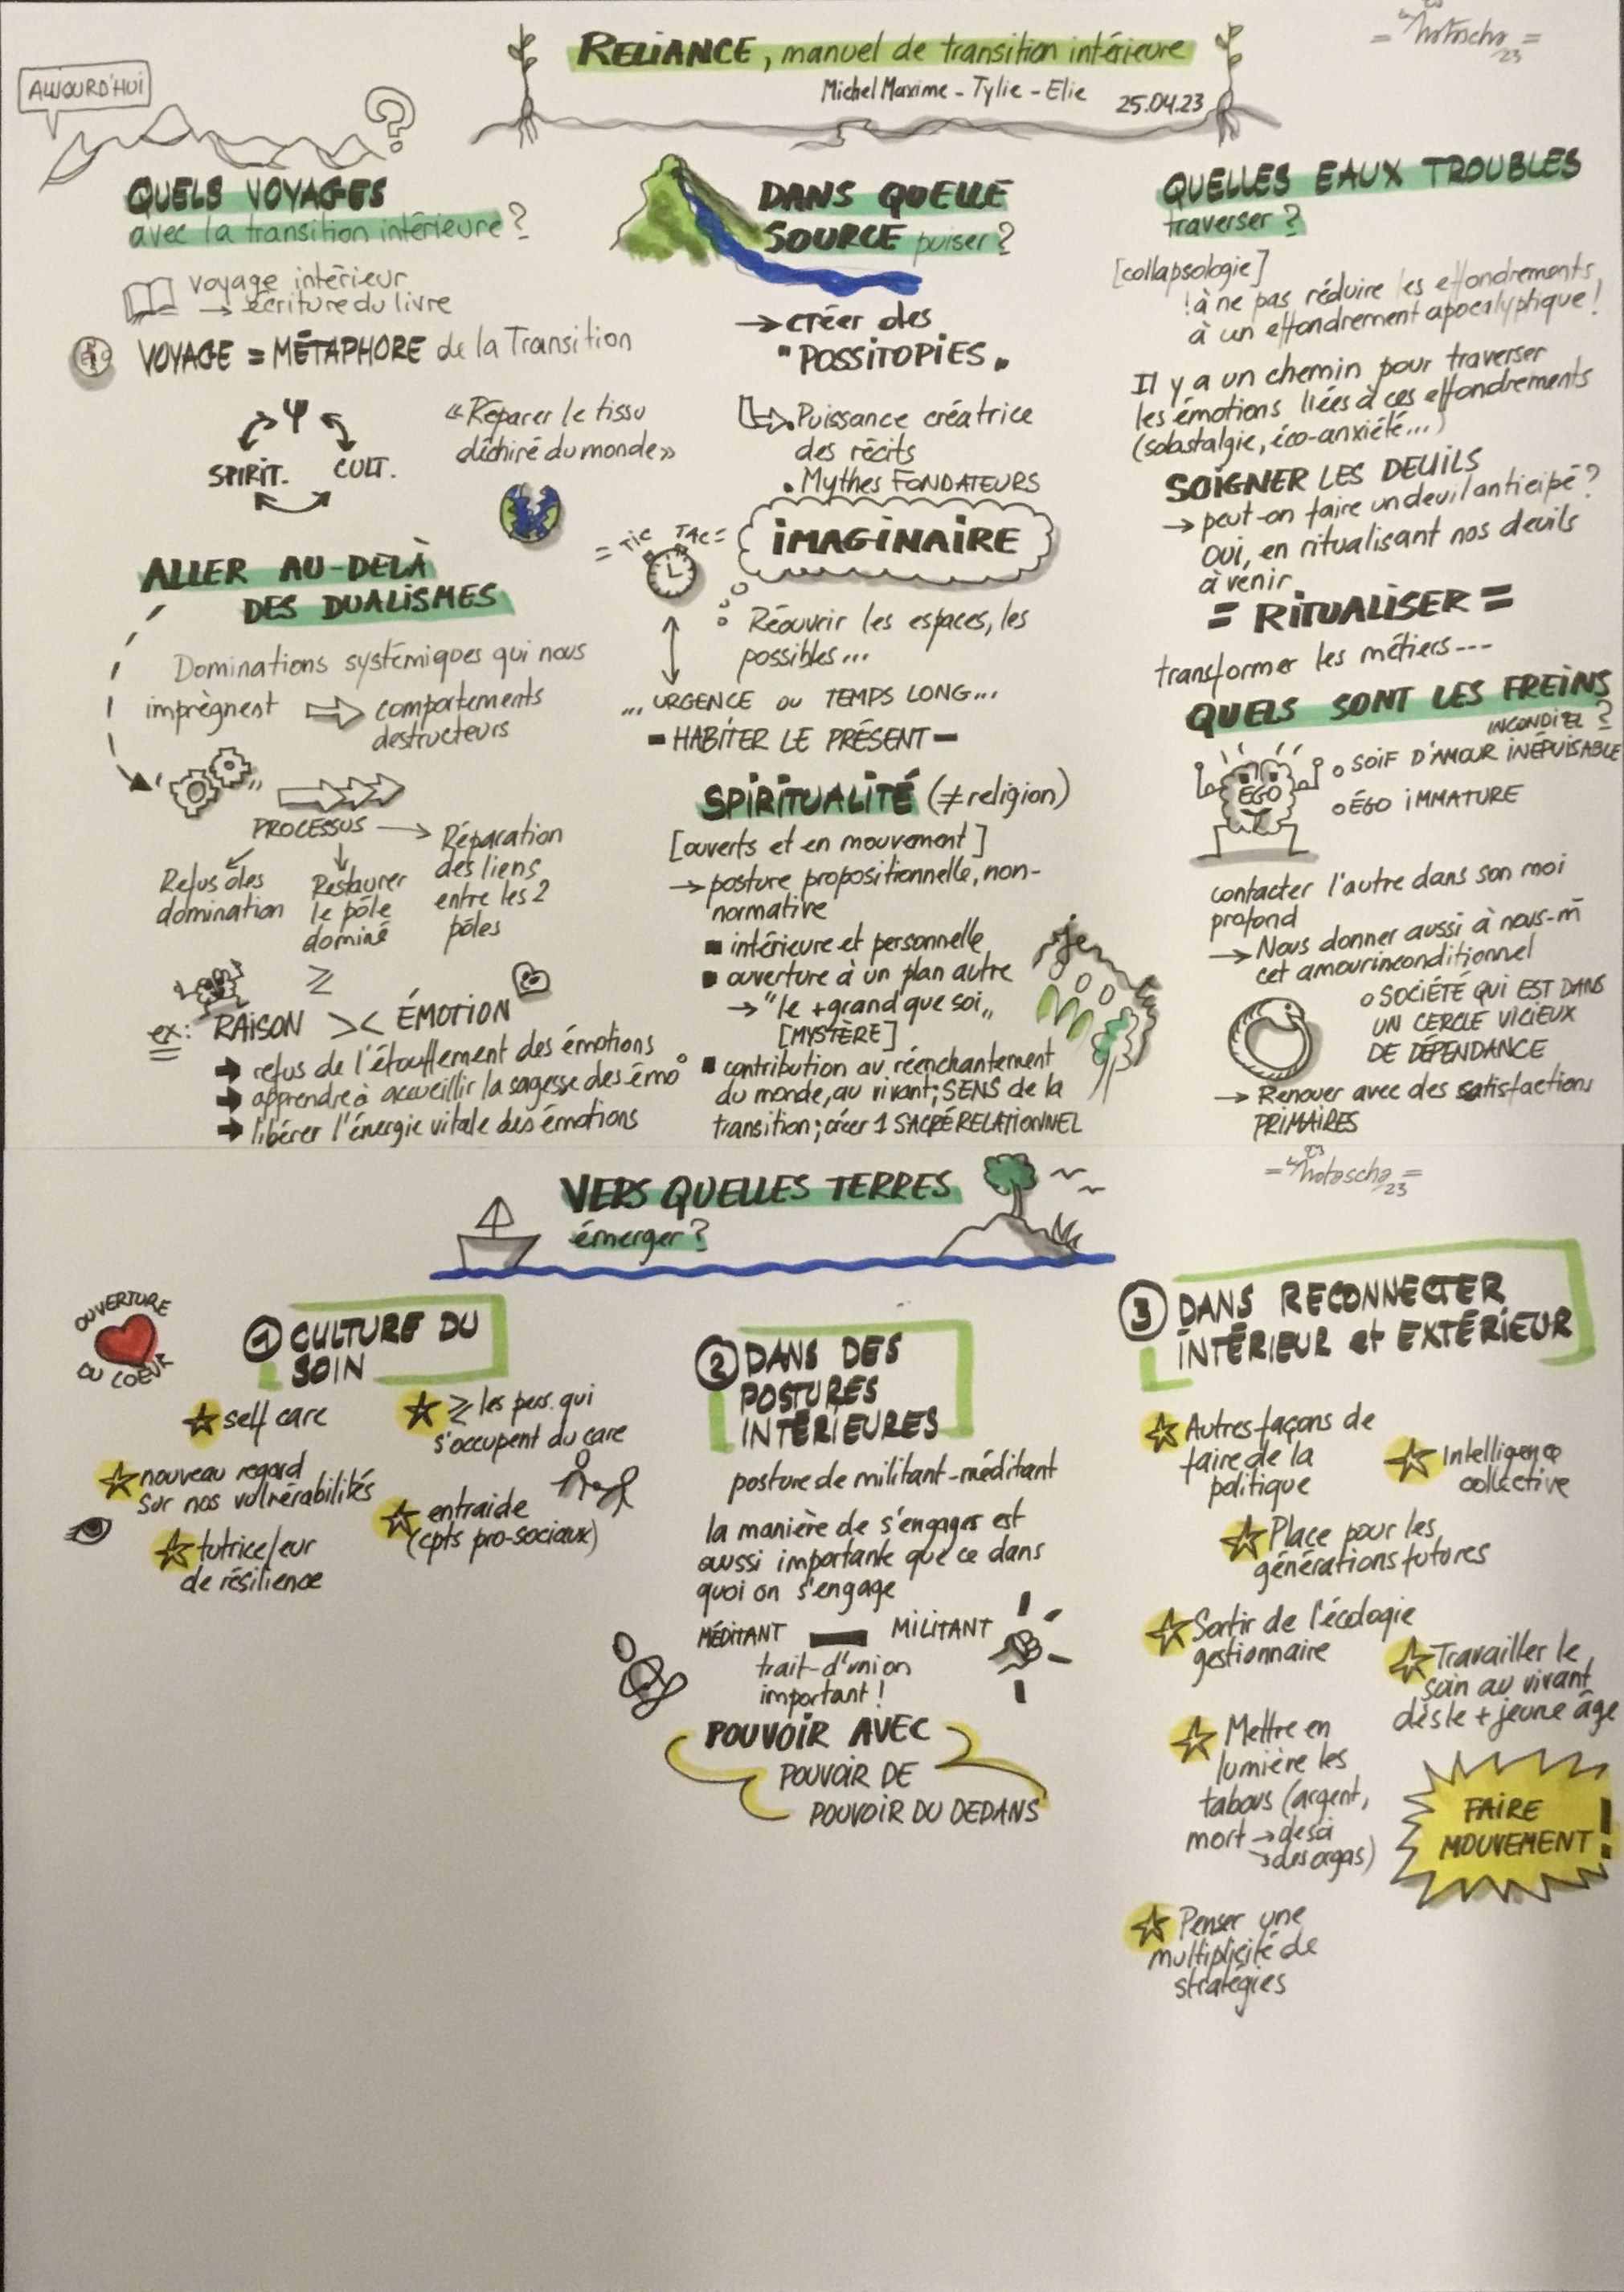 RELIANCE, manuel de transition intérieure
Michel Maxime - Tylie - Elie
25.04.23
23
AUJOURD'HUI
?
QUELS VOYAGES
avec la transition intérieure?
voyage intérieur
→ écriture du livre
VOYAGE = MÉTAPHORE de la Transition
Ψ
SPIRIT. CULT.
«Réparer le tissu
déchiré du monde»
ALLER AU-DELÀ
DES DUALISMES
Dominations systémiques qui nous
imprègnent ⇒ comportements
destructeurs
PROCESSUS → Réparation
des liens
entre les 2
pôles
Refus des
domination
Restaurer
le pôle
dominé
≥
ex: RAISON >< ÉMOTION
➔ refus de l'étouffement des émotions
➔ apprendre à accueillir la sagesse des émo°
➔ libérer l'énergie vitale des émotions
DANS QUELLE
SOURCE puiser?
→ créer des
"POSSITOPIES"
Puissance créatrice
des récits
• Mythes FONDATEURS
= TIC TAC =
IMAGINAIRE
Réouvrir les espaces, les
possibles...
... URGENCE OU TEMPS LONG...
- HABITER LE PRÉSENT -
SPIRITUALITÉ (≠ religion)
[ouverts et en mouvement]
→ posture propositionnelle, non-
normative
▪ intérieure et personnelle
▪ ouverture à un plan autre
→ "le + grand que soi"
[MYSTÈRE]
▪ contribution au réenchantement
du monde, au vivant; SENS de la
transition; créer 1 SACRÉ RELATIONNEL
QUELLES EAUX TROUBLES
traverser?
[collapsologie]
! à ne pas réduire les effondrements
à un effondrement apocalyptique!
Il y a un chemin pour traverser
les émotions liées à ces effondrements
(solastalgie, éco-anxiété...)
SOIGNER LES DEUILS
→ peut-on faire un deuil anticipé?
Oui, en ritualisant nos deuils
à venir
= RITUALISER =
transformer les métiers---
QUELS SONT LES FREINS
?
INCONDITEL
○ SOIF D'AMOUR INÉPUISABLE
○ ÉGO IMMATURE
EGO
contacter l'autre dans son moi
profond
→ Nous donner aussi à nous-m̄
cet amour inconditionnel
○ SOCIÉTÉ QUI EST DANS
UN CERCLE VICIEUX
DE DÉPENDANCE
→ Renouer avec des satisfactions
PRIMAIRES
23
VERS QUELLES TERRES
émerger?
OUVERTURE
DU COEUR
1 CULTURE DU
SOIN
☆ self care
☆ ≥ les pers. qui
s'occupent du care
☆ nouveau regard
sur nos vulnérabilités
☆ entraide
(cpts pro-sociaux)
☆ tutrice/eur
de résilience
2 DANS DES
POSTURES
INTÉRIEURES
posture de militant-méditant
la manière de s'engager est
aussi importante que ce dans
quoi on s'engage
MÉDITANT - MILITANT
trait-d'union
important!
POUVOIR AVEC
POUVOIR DE
POUVOIR DU DEDANS
3 DANS RECONNECTER
INTÉRIEUR et EXTÉRIEUR
☆ Autres façons de
faire de la
politique
☆ Intelligence
collective
☆ Place pour les
générations futures
☆ Sortir de l'écologie
gestionnaire
☆ Travailler le
soin au vivant
dès le + jeune âge
☆ Mettre en
lumière les
tabous (argent,
mort → de soi
→ des orgas)
FAIRE
MOUVEMENT!
☆ Penser une
multiplicité de
stratégies